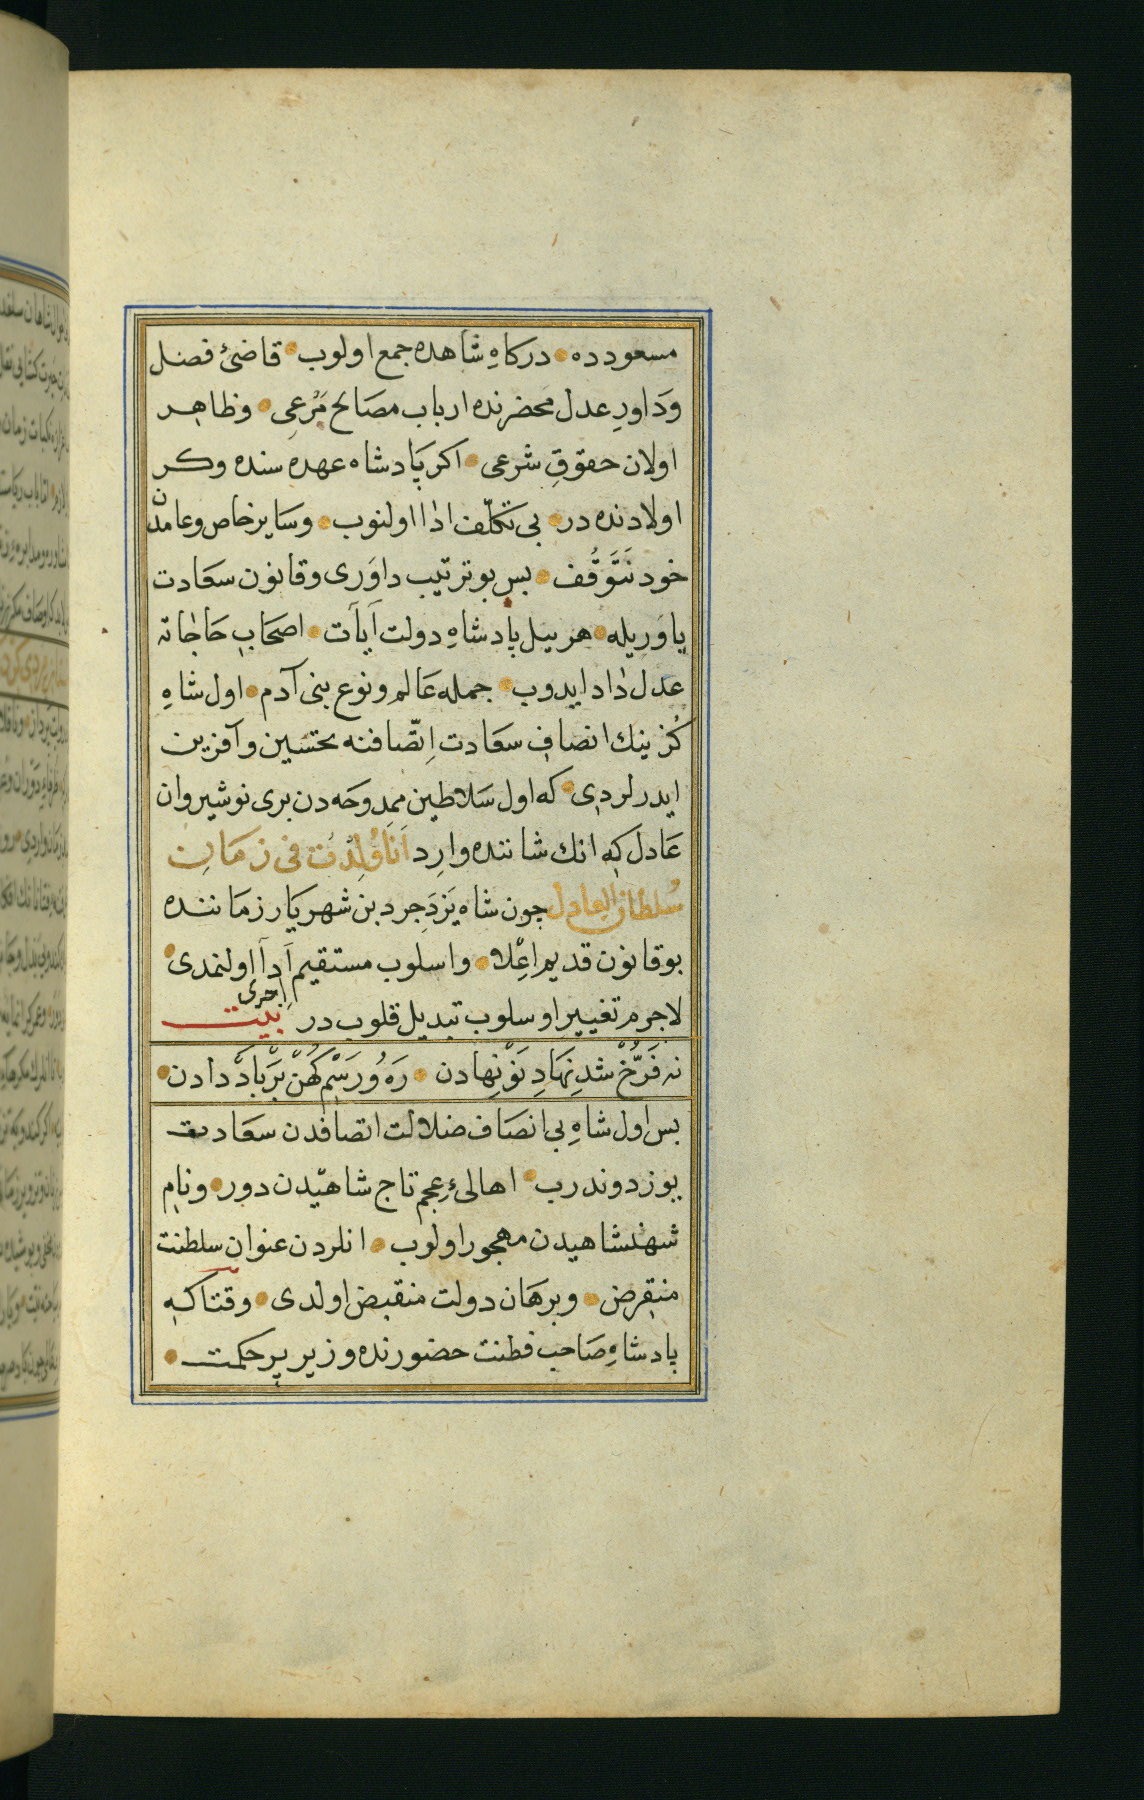 مسعودده درکاهِ شاهده جمع اولوب قاضیٔ فضل
وَداورِ عدل محضرنده ارباب مصَالح مَرْعِی وظاهِر
اولان حقوقِ شرعی اکر پَادشاه عهده سنده وکر
اولادنده در بی تکلّف ادٰا اولنوب وسَایر خاص وعامدن
خود نَتَوَقُّف بس بو ترتیب داوَری وقانون سعَادت
یاوَریله هر ییل پادشاهِ دولت آیَات اصحَابِ حَاجَاته
عدل دٰاد ایدوب جمله عَالم ونوع بنی آدم اول شاهِ
کُزینك انصافِ سعَادت اِتّصَافنه تحسین وآفزین
ایدرلردی که اول سَلاطین ممدوحَه دن بری نوشیروان
عَادل که انك شاننده وارِد اَنَا وُلِدْتُ فی زمَانِ
سُلطَانِ العَادل چون شاه یَزدَجرد بن شهریَار زمَاننده
بو قانون قدیم اعِْلا واسلوب مستقیم اَدآ اولنمدی
لاجرم تغییرِ اوسلوب تبدیل قلوب در اِجری بیت
نه فَرّخْ شد نِهَادِ نَوْ نِهادن رَهُ وُرَسْم کُهَنْ بَربَادْ دادن
بس اول شاهِ بی انصَاف ضلالت اتصافدن سعَادت
یوز دوندرب اهالیٔ عجم تاج شاهیّدن دور ونامِ
شهنشاهیدن مهجور اولوب انلردن عنوان سلطنت
منقرض وبرهَان دولت منقبض اولدی وقتاکه
پادشاهِ صَاحب فطنت حضورنده وزیر پر حکمت